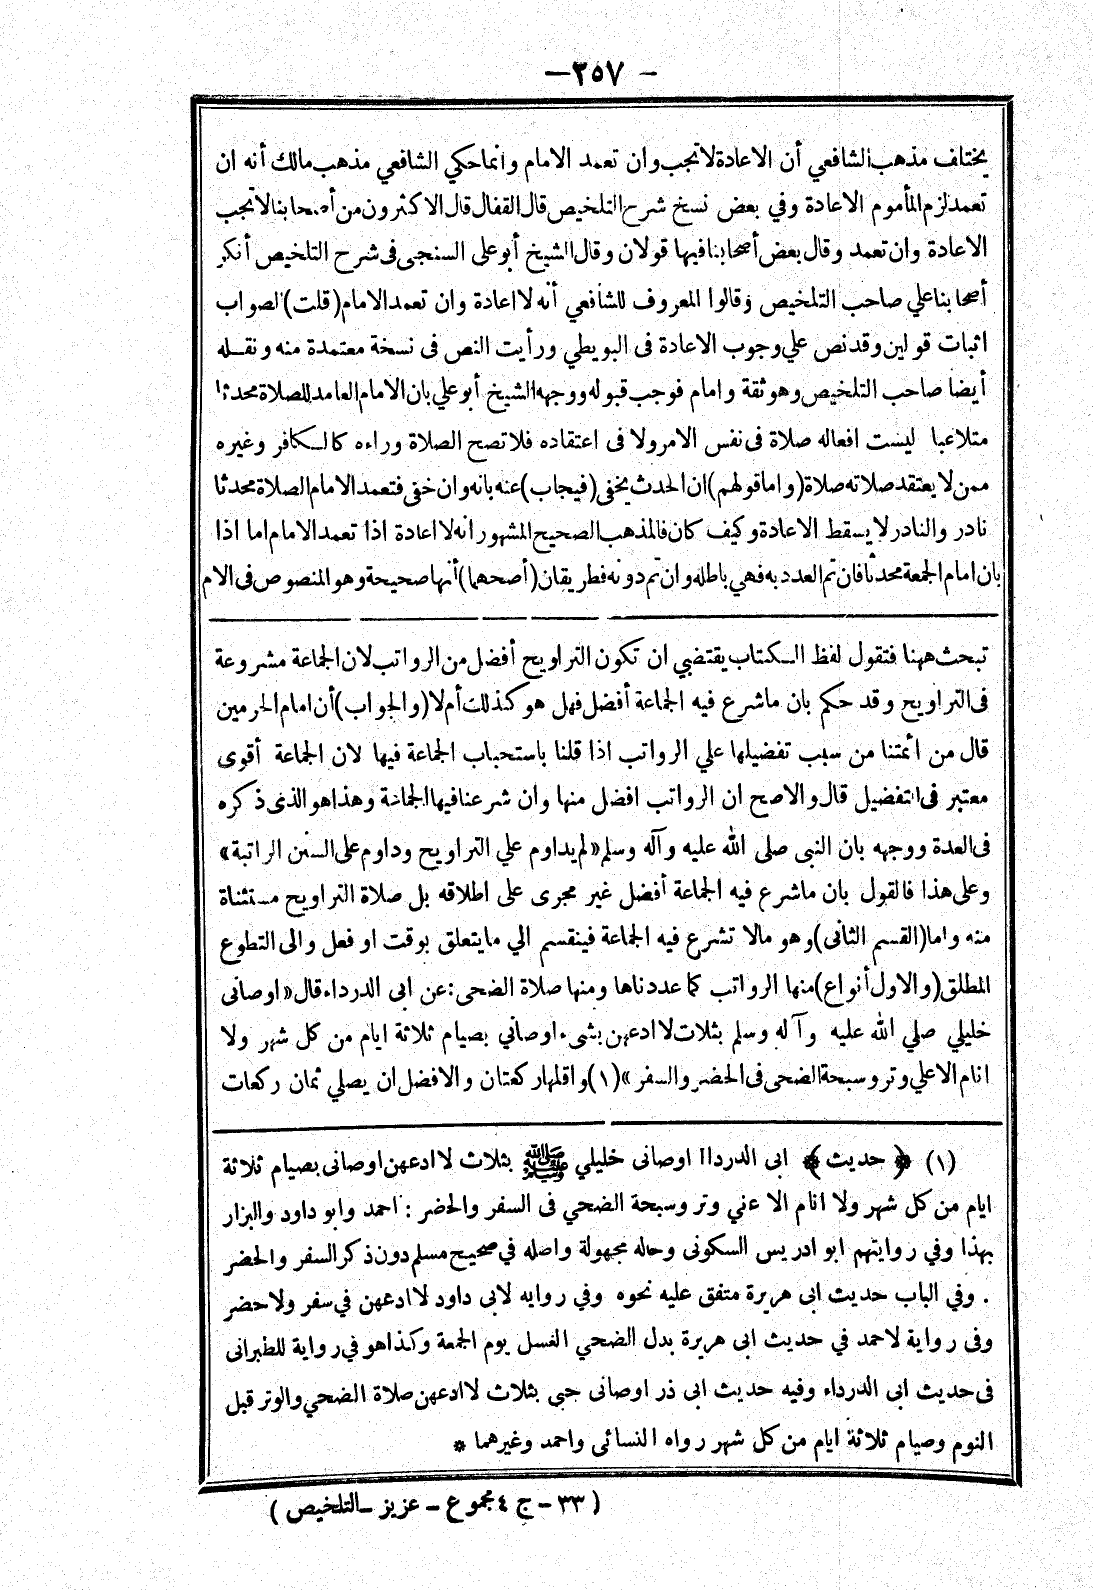 — ٢٥٧ —
يختلف مذهب الشافعي أن الاعادة لا تجب وان تعمد الامام وانما حكي الشافعي مذهب مالك أنه ان
تعمد لزم المأموم الاعادة وفي بعض نسخ شرح التلخيص قال القفال قال الاكثرون من أصحابنا لا تجب
الاعادة وان تعمد وقال بعض أصحابنا فيها قولان وقال الشيخ أبو على السنجى فى شرح التلخيص أنكر
أصحابنا علي صاحب التلخيص وقالوا المعروف للشافعي أنه لا اعادة وان تعمد الامام (قلت) الصواب
اثبات قولين وقد نص علي وجوب الاعادة فى البويطي ورأيت النص فى نسخة معتمدة منه ونقله
أيضا صاحب التلخيص وهو ثقة وامام فوجب قبوله ووجهه الشيخ أبو علي بان الامام العامد للصلاة محدثا
متلاعبا ليست افعاله صلاة فى نفس الامر ولا فى اعتقاده فلا تصح الصلاة وراءه كالكافر وغيره
ممن لا يعتقد صلاته صلاة (واما قولهم) ان الحدث يخفى (فيجاب) عنه بانه وان خفى فتعمد الامام الصلاة محدثا
نادر والنادر لا يسقط الاعادة وكيف كان فالمذهب الصحيح المشهور انه لا اعادة اذا تعمد الامام اما اذا
بان امام الجمعة محدثا فان تم العدد به فهي باطلة وان تم دونه فطريقان (أصحهما) أنها صحيحة وهو المنصوص فى الام
تبحث ههنا فتقول لفظ الكتاب يقتضي ان تكون التراويح أفضل من الرواتب لان الجماعة مشروعة
فى التراويح وقد حكم بان ماشرع فيه الجماعة أفضل فهل هو كذلك أم لا (والجواب) أن امام الحرمين
قال من أئمتنا من سبب تفضيلها علي الرواتب اذا قلنا باستحباب الجماعة فيها لان الجماعة أقوى
معتبر فى التفضيل قال والاصح ان الرواتب افضل منها وان شرعنا فيها الجماعة وهذا هو الذى ذكره
فى العدة ووجهه بان النبى صلى الله عليه وآله وسلم «لم يداوم علي التراويح وداوم على السنن الراتبة»
وعلى هذا فالقول بان ماشرع فيه الجماعة أفضل غير مجرى على اطلاقه بل صلاة التراويح مستثناة
منه واما (القسم الثانى) وهو مالا تشرع فيه الجماعة فينقسم الي مايتعلق بوقت او فعل والى التطوع
المطلق (والاول أنواع) منها الرواتب كما عددناها ومنها صلاة الضحى : عن ابى الدرداء قال «اوصانى
خليلي صلي الله عليه وآله وسلم بثلات لا ادعهن بشىء اوصاني بصيام ثلاثة ايام من كل شهر ولا
انام الا علي وتر وسبحة الضحى فى الحضر والسفر» (١) واقلها ركعتان والافضل ان يصلي ثمان ركعات
(١) ﴿ حديث ﴾ ابى الدرداا اوصانى خليلي ﷺ بثلاث لا ادعهن اوصانى بصيام ثلاثة
ايام من كل شهر ولا انام الا على وتر وسبحة الضحي فى السفر والحضر : احمد وابو داود والبزار
بهذا وفي روايتهم ابو ادريس السكونى وحاله مجهولة واصله في صحيح مسلم دون ذكر السفر والحضر
. وفي الباب حديث ابى هريرة متفق عليه نحوه وفي روايه لابى داود لا ادعهن في سفر ولا حضر
وفى رواية لاحمد في حديث ابى هريرة بدل الضحي الغسل يوم الجمعة وكذا هو في رواية للطبرانى
فى حديث ابى الدرداء وفيه حديث ابى ذر اوصانى حبى بثلاث لا ادعهن صلاة الضحي والوتر قبل
النوم وصيام ثلاثة ايام من كل شهر رواه النسائى واحمد وغيرهما *
( ٣٣ – ج ٤ مجموع – عزيز – التلخيص )